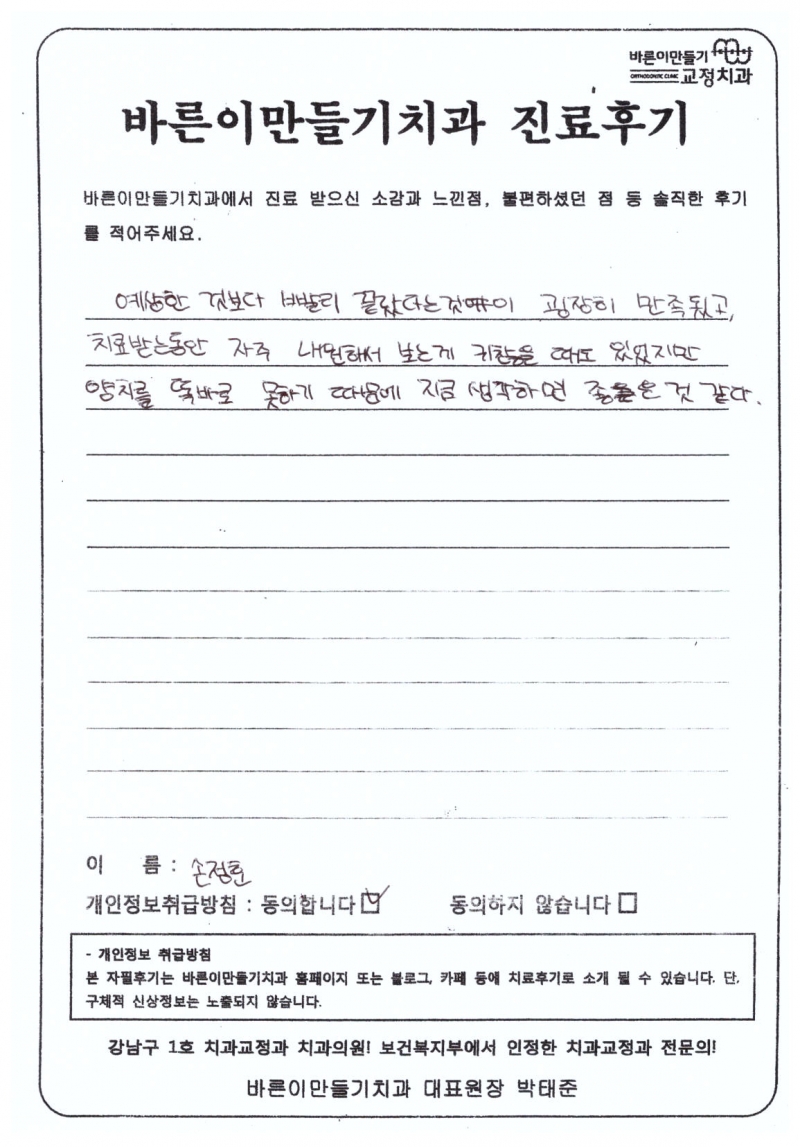 바른이만들기
ORTHODONTIC CLINIC 교정치과
바른이만들기치과 진료후기
바른이만들기치과에서 진료 받으신 소감과 느낀점, 불편하셨던 점 등 솔직한 후기
를 적어주세요.
예상한 것보다 빨리 끝났다는것 이 굉장히 만족됬고,
치료받는동안 자주 내원해서 보는게 귀찮을 때도 있었지만
양치를 똑바로 못하기 때문에 지금 생각하면 좋은 것 같다.
이 름 : 손정훈
개인정보취급방침 : 동의합니다 동의하지 않습니다
- 개인정보 취급방침
본 자필후기는 바른이만들기치과 홈페이지 또는 블로그, 카페 등에 치료후기로 소개 될 수 있습니다. 단,
구체적 신상정보는 노출되지 않습니다.
강남구 1호 치과교정과 치과의원! 보건복지부에서 인정한 치과교정과 전문의!
바른이만들기치과 대표원장 박태준